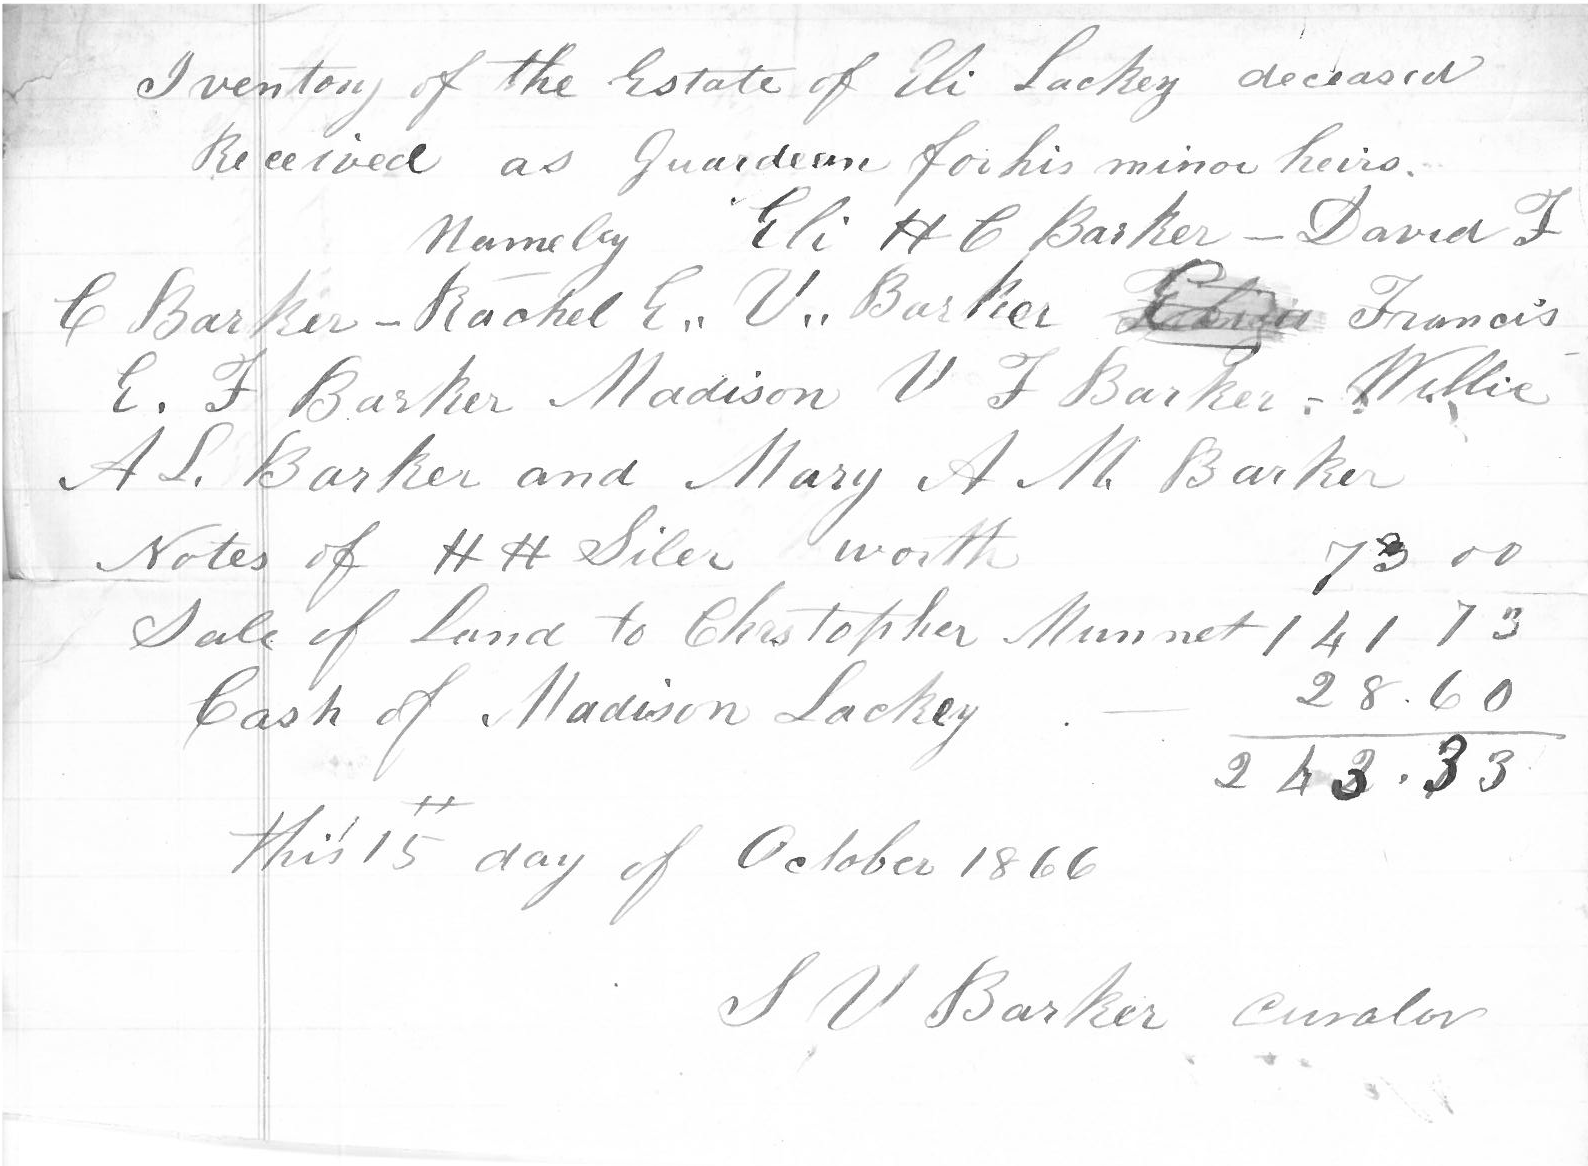 Iventory of the Estate of Eli Lackey deceased
Received as Guardean for his minor heirs.
Nameley Eli H C Barker – David F
C Barker – Rachel E,, V,, Barker Francis
E. F Barker Madison V F Barker – Willie
A L. Barker and Mary A M. Barker
Notes of H H Siler worth 73 00
Sale of Land to Christopher Munnet 141 73
Cash of Madison Lackey . — 28.60
243.33
this 15th day of October 1866
S V Barker Curator